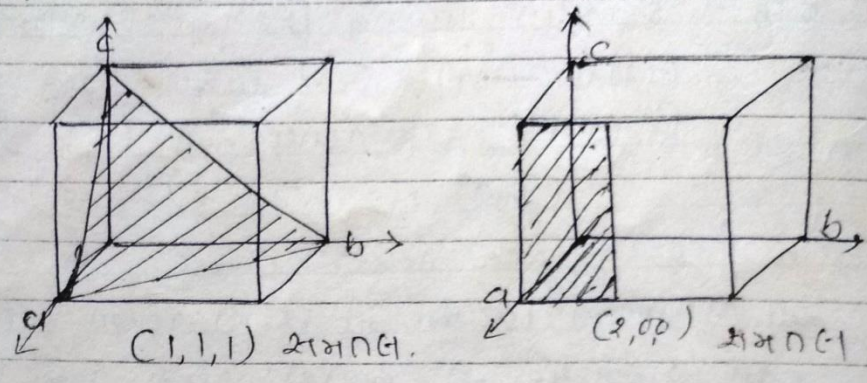 c
b
a
(1,1,1) સમતલ.
c
b
a
(2,0,0) સમતલ